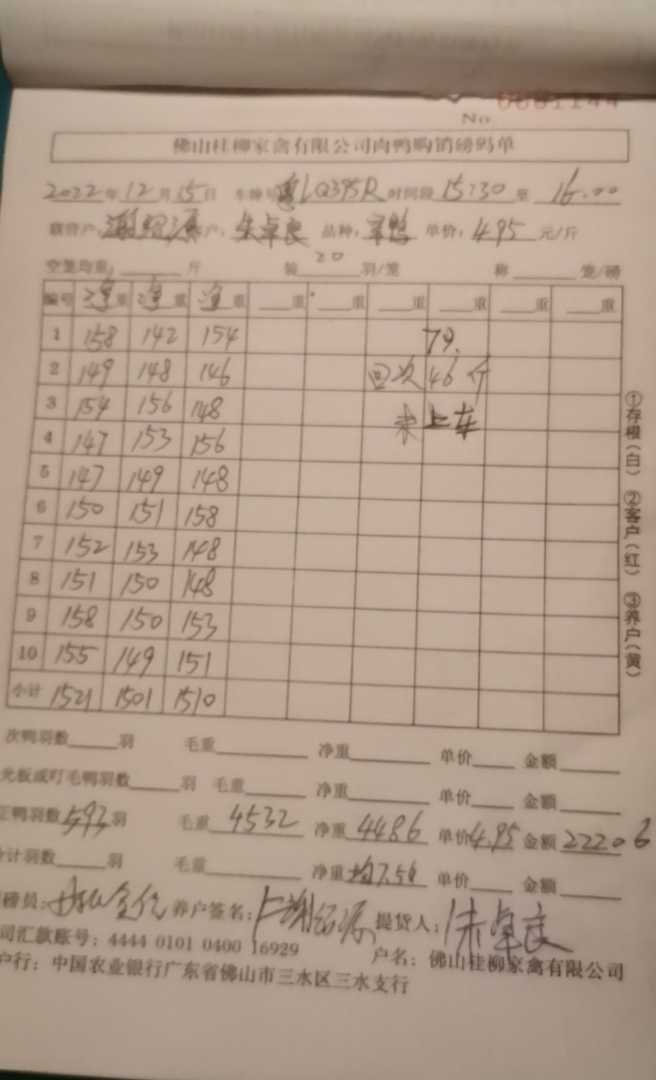 No 0001144
佛山桂柳家禽有限公司肉鸭购销磅码单
2022年12月15日 车牌号 LQ395R 时间段 15:30 至 16.00
户: 朱卓良 品种: 单价: 4.95 元/斤
空笼均重: 斤 装 20 羽/笼 称 笼/磅
编号 净重 净重 净重 重 重 重 重 重 重
1 158 142 154 7只.
2 149 148 146 回次 46斤
3 154 156 148 未上车
4 147 153 156
5 147 149 148
6 150 151 158
7 152 153 148
8 151 150 148
9 158 150 153
10 155 149 151
小计 1521 1501 1510
①存根(白) ②客户(红) ③养户(黄)
次鸭羽数 羽 毛重 净重 单价 金额
光板或叮毛鸭羽数 羽 毛重 净重 单价 金额
正鸭羽数 593 羽 毛重 4532 净重 4486 单价 4.95 金额 22206
合计羽数 羽 毛重 净重 均7.54 单价 金额
磅员: 养户签名: 提货人: 朱卓良
司汇款账号: 4444 0101 0400 16929 户名: 佛山桂柳家禽有限公司
户行: 中国农业银行广东省佛山市三水区三水支行